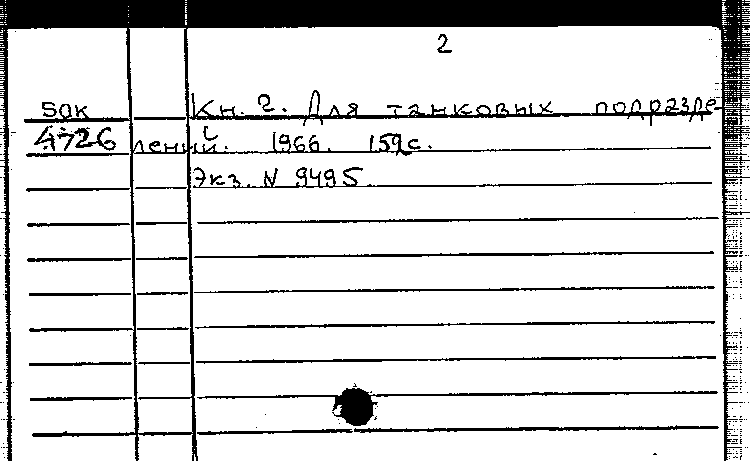 2
50к Кн. 2. Для танковых подразде-
4726 лений. 1966. 159с.
Экз. N 9495